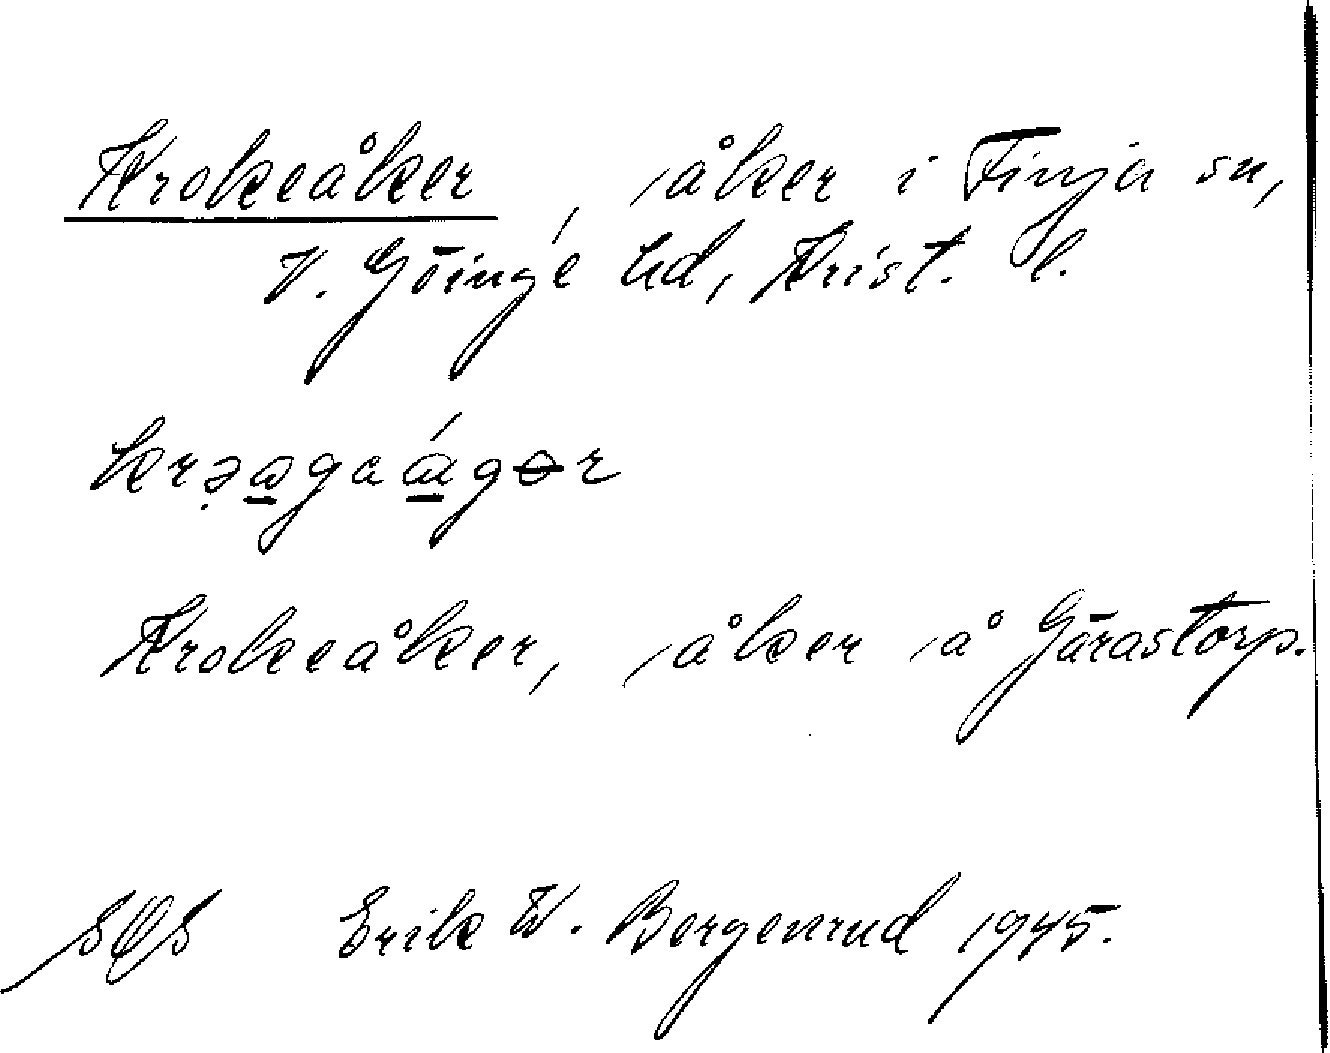 Krokeåker, åker i Finja sn,
V. Göinge hd, Krist. l.
Krokeåker, åker å Görastorp.
Erik W. Bergenrud 1945.